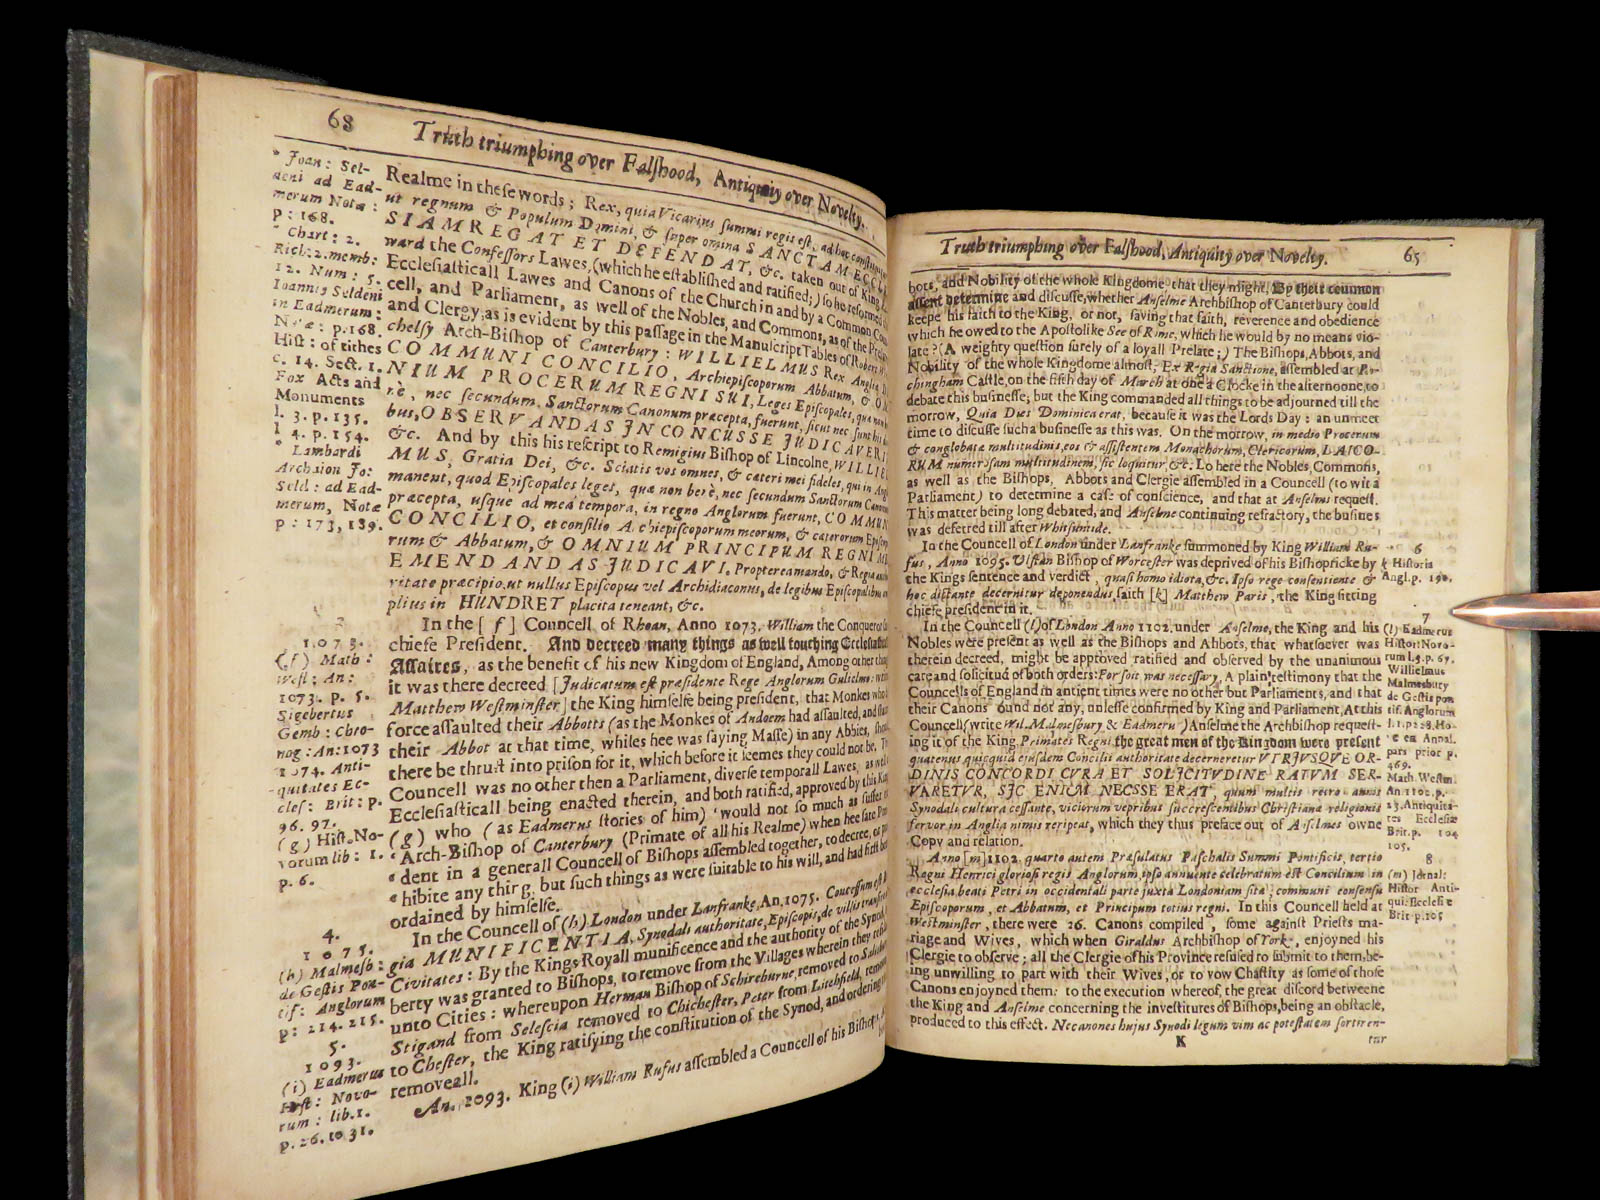 68 Truth triumphing over Falſhood, Antiquity over Novelty.
* Joan: Sel-
deni ad Ead-
merum Notæ :
p : 168.
* Chart : 2.
Rich: 2. memb:
12. Num : 5.
Ioannis Seldeni
in Eadmerum :
p. 168.
Hiſt : of tithes
c. 14. Sect. 1.
Fox Acts and
Monuments
l. 3. p. 135.
l 4. p. 154.
* Lambardi
Archaion Jo:
Seld : ad Ead-
merum, Notæ
p : 173, 189.
3
1073.
(f) Math :
Weſt : An :
1073. p. 5.
Sigebertus
Gemb : Chro-
nog : An: 1073
1074. Anti-
quitates Ec-
cleſ : Brit : p.
96. 97.
(g) Hiſt. No-
vorum lib : 1.
p. 6.
4.
1075.
(h) Malmeſb :
de Geſtis Pon-
tif : Anglorum
p : 214. 215.
5.
1093.
(i) Eadmerus
Hiſt : Novo-
rum : lib. 1.
p. 26. to 31.
Realme in theſe words ; Rex, quia Vicarius ſummi regis eſt, ad hoc
ut regnum & Populum Domini, & ſuper omnia SANCTAM
SIAM REGAT ET DEFENDAT, &c. taken out of King
ward the Confeſſors Lawes, (which he eſtabliſhed and ratified;) ſo he reformed
Eccleſiaſticall Lawes and Canons of the Church in and by a Common
cell, and Parliament, as well of the Nobles, and Commons, as of the
and Clergy; as is evident by this paſſage in the Manuſcript Tables of Robert
chelſy Arch-Biſhop of Canterbury : WILLIELMUS Rex
COMMUNI CONCILIO, Archiepiſcoporum Abbatum, &
NIUM PROCERUM REGNI SUI, Leges Epiſcopales,
nec ſecundum Sanctorum Canonum præcepta, fuerunt, ſicut nec
bus, OBSERVANDAS IN CONCUSSE JUDICAVERI
&c. And by this his reſcript to Remigius Biſhop of Lincolne,
MUS, Gratia Dei, &c. Sciatis vos omnes, & cæteri mei fideles, qui in
manent, quod Epiſcopales leges, quæ non bere, nec ſecundum Sanctorum
præcepta, uſque ad mea tempora, in regno Anglorum fuerunt,
CONCILIO, et conſilio Archiepiſcoporum meorum, & cæterorum
rum & Abbatum, & OMNIUM PRINCIPUM REGNI
EMENDANDAS JUDICAVI. Propterea mando, & Regia
ritate præcipio, ut nullus Epiſcopus vel Archidiaconus, de legibus Epiſcopalibus
plius in HUNDRET placita teneant, &c.
In the [ f ] Councell of Rhoan, Anno 1073, William the Conquerot
chiefe Preſident. And decreed many things as well touching
Affaires, as the benefit of his new Kingdom of England, Among other
it was there decreed [Judicatum eſt præſidente Rege Anglorum Gulielmo:
Matthew Weſtminſter] the King himſelfe being preſident, that Monkes who
force aſſaulted their Abbotts (as the Monkes of Andoem had aſſaulted, and
their Abbot at that time, whiles hee was ſaying Maſſe) in any Abbies,
there be thruſt into priſon for it, which before it ſeemes they could not be.
Councell was no other then a Parliament, diverſe temporall Lawes, as
Eccleſiaſticall being enacted therein, and both ratified, approved by this
(g) who ( as Eadmerus ſtories of him) ‘ would not ſo much as ſuffer
‘ Arch-Biſhop of Canterbury (Primate of all his Realme) when hee ſate
‘ dent in a generall Councell of Biſhops aſſembled together, to decree, or
‘ hibite any thing, but ſuch things as were ſuitable to his will, and had firſt
ordained by himſelfe.
In the Councell of (h) London under Lanfranke, An, 1075.
gia MUNIFICENTIA, Synodali authoritate, Epiſcopis, de villis
Civitates : By the Kings Royall munificence and the authority of the
berty was granted to Biſhops, to remove from the Villages wherein they
unto Cities : whereupon Herman Biſhop of Schireburne, removed to
Stigand from Seleſcia removed to Chicheſter, Peter from Litchfield,
to Cheſter, the King ratifying the conſtitution of the Synod, and ordering
removeall.
An, 1093. King (i) William Rufus aſſembled a Councell of his Biſhops,
Truth triumphing over Falſhood, Antiquity over Novelty. 65
bots, and Nobility of the whole Kingdome, that they might, By their common
aſſent determine and diſcuſſe, whether Anſelme Archbiſhop of Canterbury could
keepe his faith to the King, or not, ſaving that faith, reverence and obedience
which he owed to the Apoſtolike See of Rome, which he would by no means vio-
late ? (A weighty queſtion ſurely of a loyall Prelate ; ) The Biſhops, Abbots, and
Nobility of the whole Kingdome almoſt, Ex Regia Sanctione, aſſembled at
chingham Caſtle, on the fifth day of March at one a Clocke in the afternoone, to
debate this buſineſſe; but the King commanded all things to be adjourned till the
morrow, Quia Dies Dominica erat, becauſe it was the Lords Day : an unmeet
time to diſcuſſe ſuch a buſineſſe as this was. On the morrow, in medio Procerum
& conglobatæ multitudinis, eos & aſſiſtentem Monachorum, Clericorum, LAICO-
RUM numeroſam multitudinem, ſic loquitur, &c. Lo here the Nobles, Commons,
as well as the Biſhops, Abbots and Clergie aſſembled in a Councell (to wit a
Parliament) to determine a caſe of conſcience, and that at Anſelms requeſt.
This matter being long debated, and Anſelme continuing refractory, the buſines
was deferred till after Whitſuntide.
In the Councell of London under Lanfranke ſummoned by King William Ru-
fus, Anno 1095. Ulſtan Biſhop of Worceſter was deprived of his Biſhopricke by
the Kings ſentence and verdict, quaſi homo idiota, &c. Ipſo rege conſentiente &
hoc dictante decernitur deponendus ſaith [k] Matthew Paris, the King ſitting
chiefe preſident in it.
In the Councell (l) of London Anno 1102. under Anſelme, the King and his
Nobles were preſent as well as the Biſhops and Abbots, that whatſoever was
therein decreed, might be approved ratified and obſerved by the unanimous
care and ſolicitud of both orders: For ſo it was neceſſary, A plain teſtimony that the
Councells of England in antient times were no other but Parliaments, and that
their Canons ound not any, unleſſe confirmed by King and Parliament, At this
Councell (write Wil. Malmesbury & Eadmeru ) Anſelme the Archbiſhop requeſt-
ing it of the King, Primates Regni, the great men of the Kingdom were preſent
quatenus quicquid ejuſdem Concilii authoritate decerneretur VTRIVSQVE OR-
DINIS CONCORDI CVRA ET SOLICITVDINE RATVM SER-
VARETVR, SIC ENIM NECSSE ERAT, quum multis retro annis
Synodali cultura ceſſante, viciorum vepribus ſuccreſcentibus Chriſtianæ religionis
fervor in Anglia nimis reripeat, which they thus preface out of Anſelmes owne
Copy and relation.
Anno [m] 1102. quarto autem Præſulatus Paſchalis Summi Pontificis, tertio
Regni Henrici glorioſi regis Anglorum, ipſo annuente celebratum eſt Concilium in
eccleſia beati Petri in occidentali parte juxta Londoniam ſita, communi conſenſu
Epiſcoporum, et Abbatum, et Principum totius regni. In this Councell held at
Weſtminſter, there were 26. Canons compiled, ſome againſt Prieſts ma-
riage and Wives, which when Giraldus Archbiſhop of York, enjoyned his
Clergie to obſerve ; all the Clergie of his Province refuſed to ſubmit to them, be-
ing unwilling to part with their Wives, or to vow Chaſtity as ſome of thoſe
Canons enjoyned them: to the execution whereof, the great diſcord betweene
the King and Anſelme concerning the inveſtitures of Biſhops, being an obſtacle,
produced to this effect. Nec canones hujus Synodi legum vim ac poteſtatem ſortiren-
K tur
6
k Hiſtoria
Angl. p. 190.
7
(l) Eadmerus
Hiſtor: Novo-
rum l. 3. p. 67.
Willielmus
Malmesbury
de Geſtis pon
tif. Anglorum
l. 1. p: 228. Ho-
ve en Annal.
pars prior p.
469.
Math. Weſtm.
An 1102. p.
23. Antiquita-
tes Eccleſiæ
Brit. p. 104
105.
8
(m)
Hiſtor Anti-
qui: Eccleſiæ
Brit p. 105